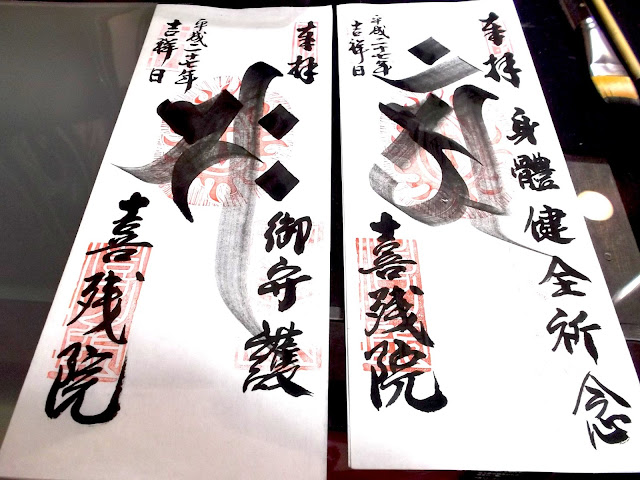 奉拝
身體健全祈念
平成二十七年
吉祥日
喜残院
奉拝
御守護
平成二十七年
吉祥日
喜残院